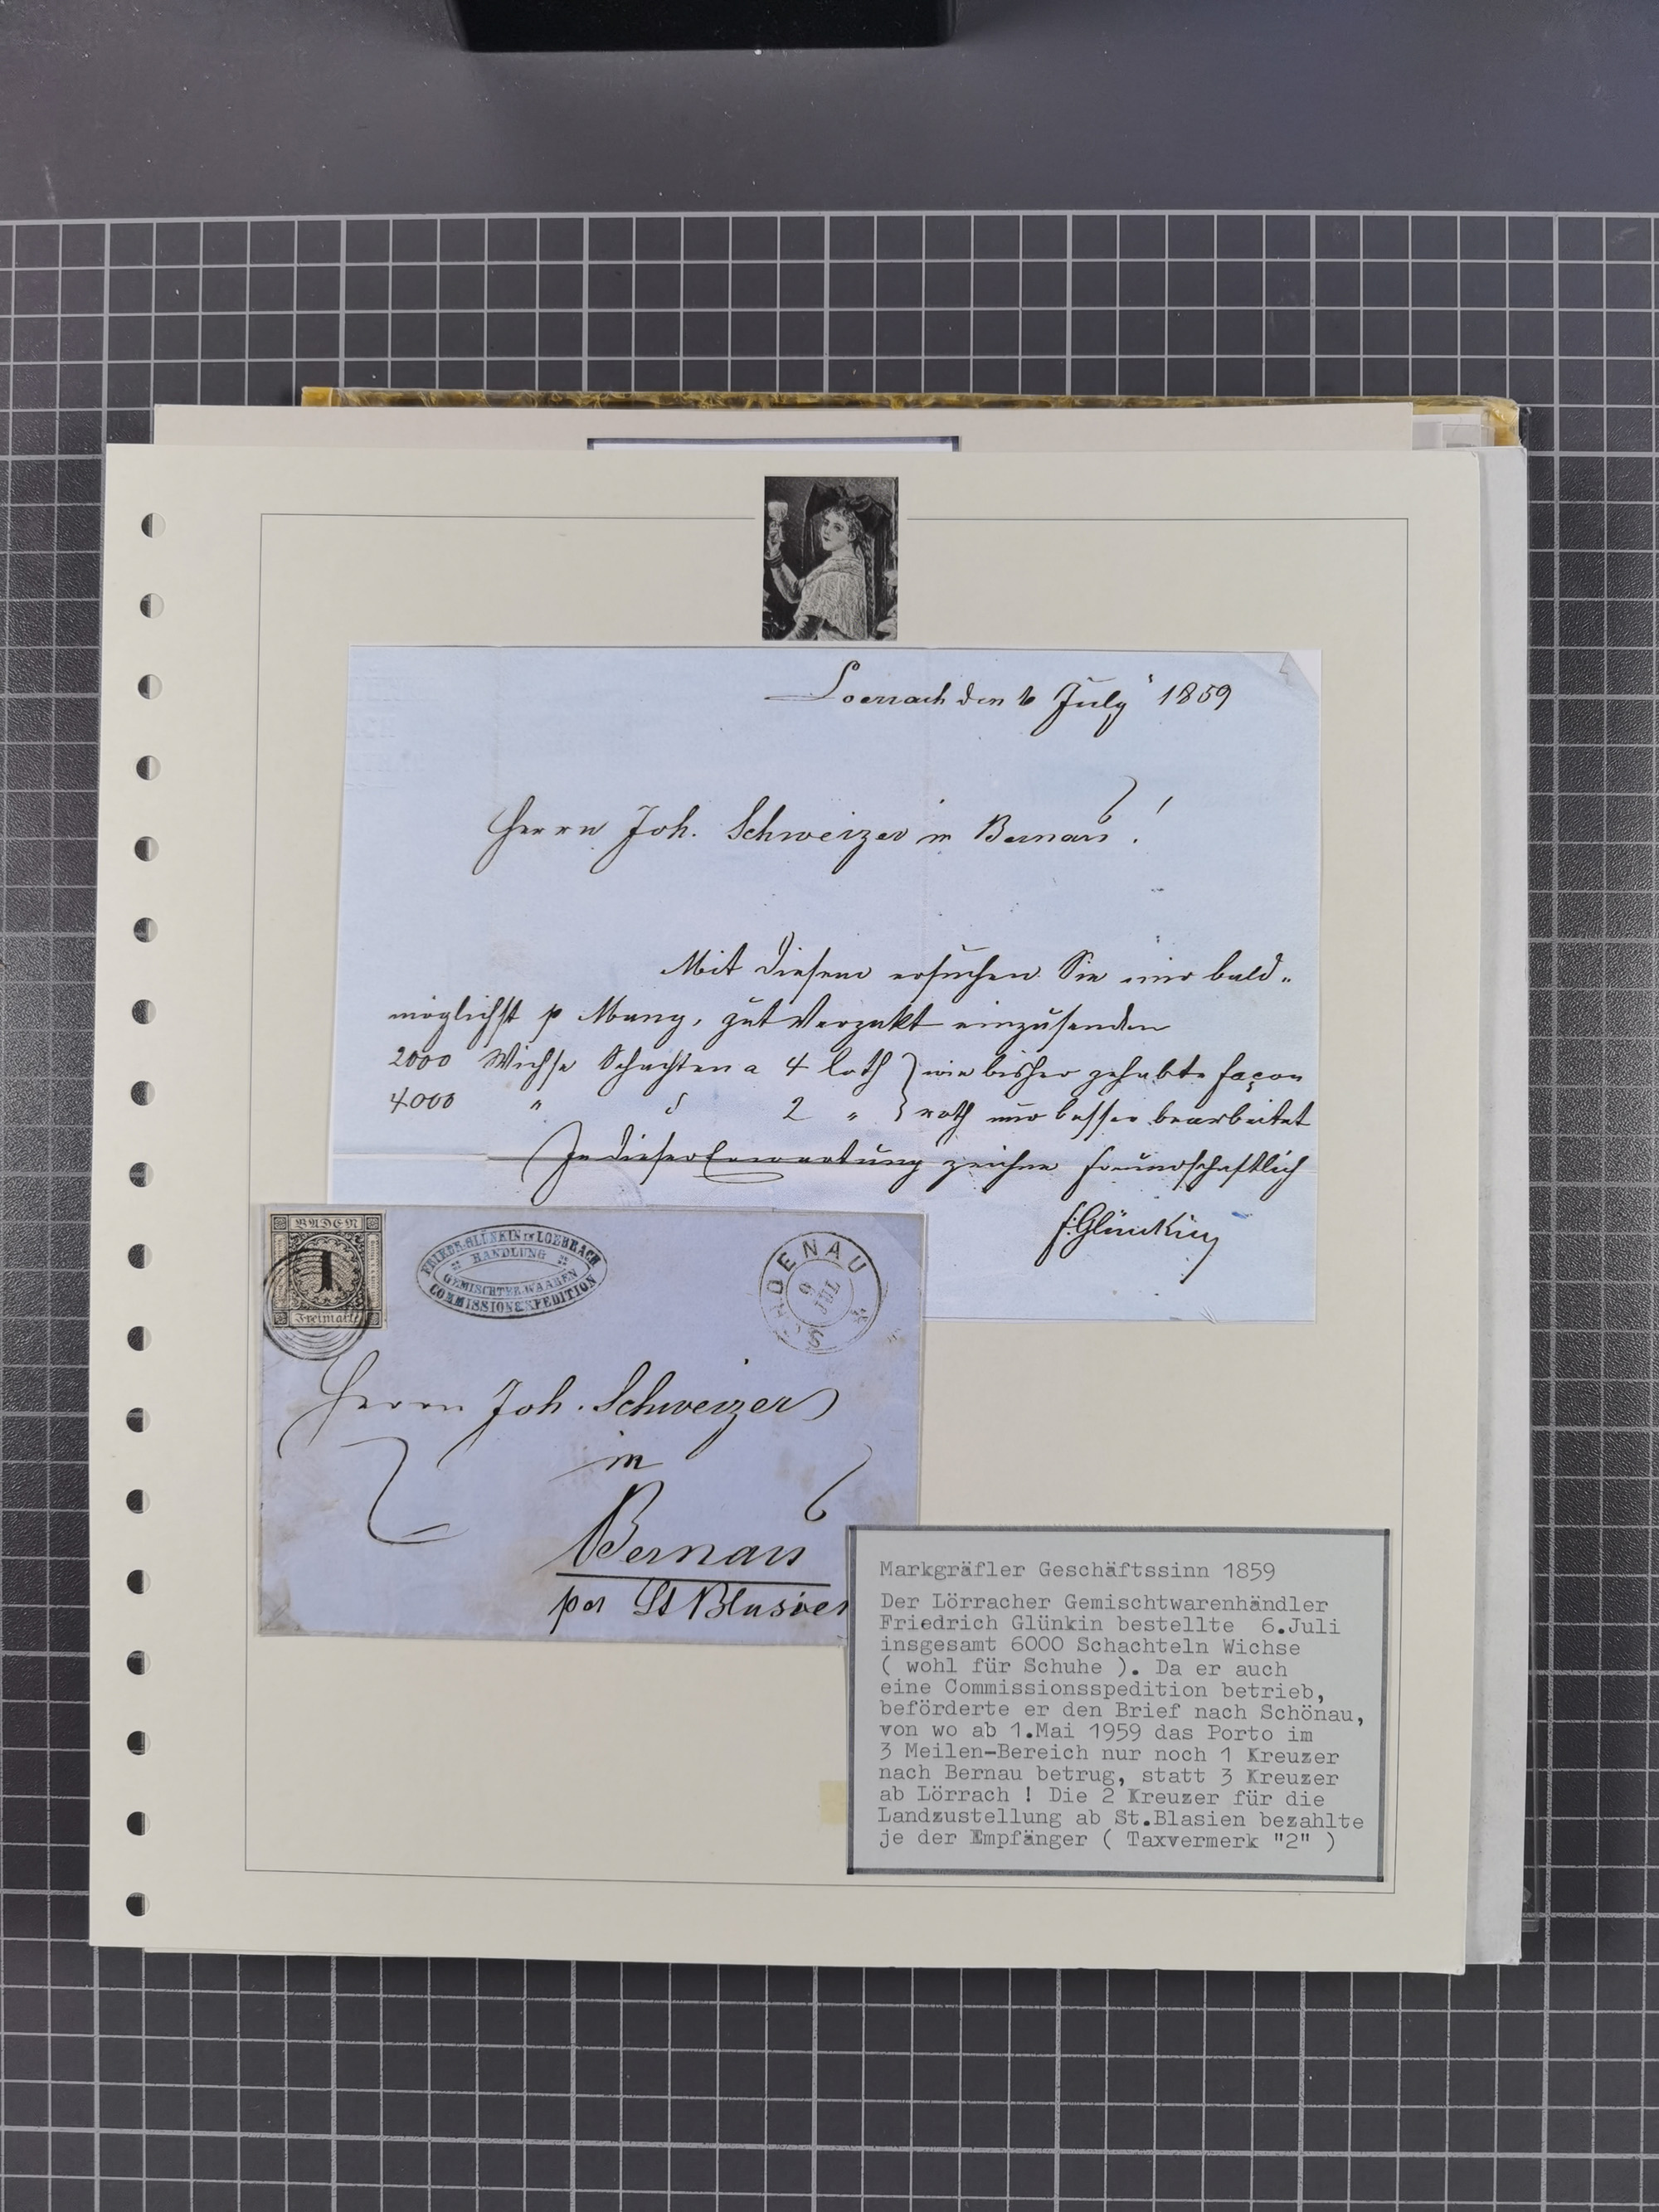 Loerrach den 6 July 1859
Herrn Joh. Schweizer in Bernau!
Mit Diesem ersuchen Sie mir bald-
möglichst p Mang, gut Verpakt einzusenden
2000 Wichse Schachten a 4 loth } wie bisher gehabte façon
4000 " d 2 " } roth nur besser bearbeitet
In dieser Erwartung zeichne freundschaftlich
F. Glünkin
BADEN
1
Freimarke
FRIEDR. GLÜNKIN in LOERRACH
HANDLUNG
GEMISCHTER WAAREN
COMMISSION & SPEDITION
SCHOENAU
6
JUL
Herrn Joh. Schweizer
in
Bernau
per St Blasien
2
Markgräfler Geschäftssinn 1859
Der Lörracher Gemischtwarenhändler
Friedrich Glünkin bestellte 6.Juli
insgesamt 6000 Schachteln Wichse
( wohl für Schuhe ). Da er auch
eine Commissionsspedition betrieb,
beförderte er den Brief nach Schönau,
von wo ab 1.Mai 1959 das Porto im
3 Meilen-Bereich nur noch 1 Kreuzer
nach Bernau betrug, statt 3 Kreuzer
ab Lörrach ! Die 2 Kreuzer für die
Landzustellung ab St.Blasien bezahlte
je der Empfänger ( Taxvermerk "2" )